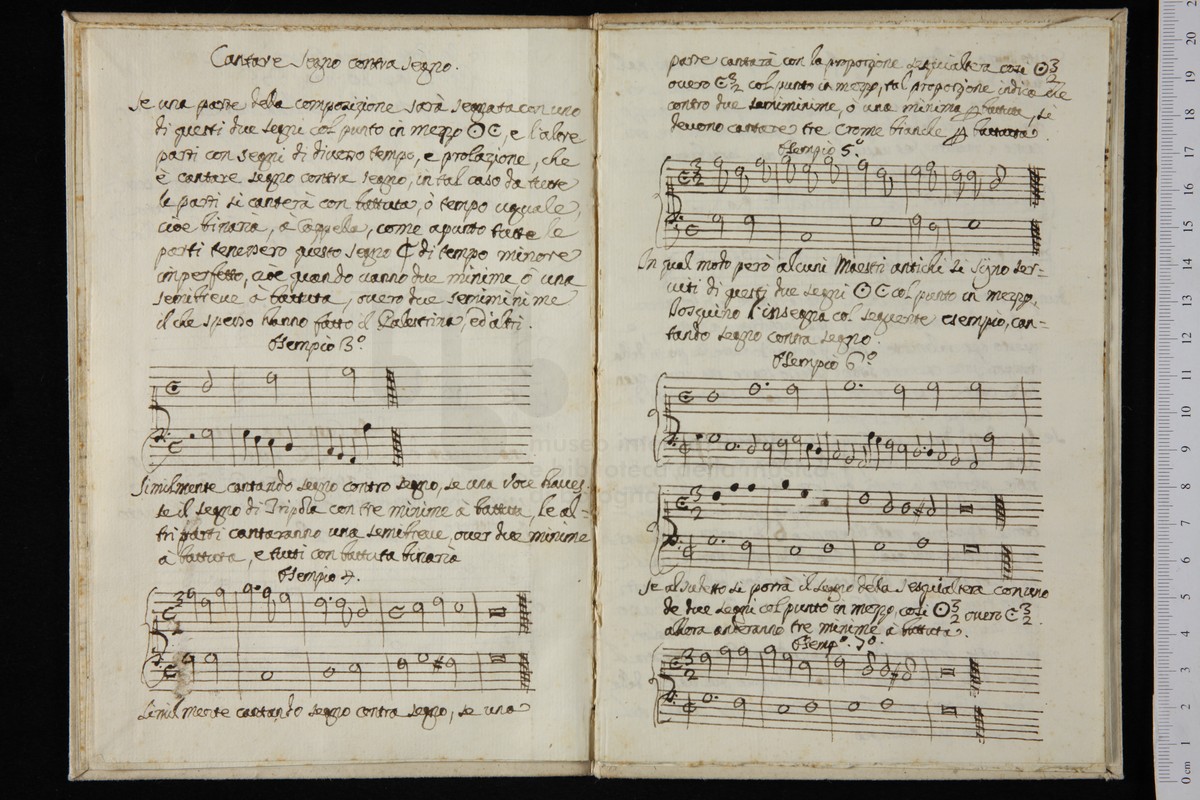 Cantare segno contra segno.
Se una parte della composizione sarà segnata con uno
di questi due segni col punto in mezzo ʘ Є, e l'altre
parti con segni di diverso tempo, e prolazione, che
è cantare segno contra segno, in tal caso da tutte
le parti si canterà con battuta, ò tempo uguale,
cioè binaria, à Cappella, come apunto tutte le
parti tenessero questo segno ₵ di tempo minore
imperfetto, cioè quando vanno due minime ò una
semibreve à battuta, overo due semiminime
il che spesso hanno fatto il Palestrina, ed altri.
Esempio 3º
Similmente cantando segno contro segno, se una voce havesse
se il segno di Tripola con tre minime à battuta, le al=
tri parti cantaranno una semibreve, over due minime
à battuta, e tutti con battuta binaria
Esempio 4.
Similmente cantando segno contra segno, se una
parte cantarà con la proporzione sesquialtera cosi ʘ 3/2
overo Є 3/2 col punto in mezzo, tal proporzione indica che
contro due semiminime, ò una minima battuta, si
devono cantare tre Crome bianche battuta
Esempio 5º
In qual modo però alcuni Maestri antichi si signo ser=
viti di questi due segni ʘ Є col punto in mezzo,
Josquino l'insegna col seguente esempio, can=
tando segno contra segno.
Esempio 6º
Se al sudetto si porrà il segno della sesquialtera con uno
de due segni col punto in mezzo, cosi ʘ 3/2 overo Є 3/2.
allora anderanno tre minime à battuta.
Esempº. 7º.
museo
e biblioteca della musica
di bologna
0 cm 1 2 3 4 5 6 7 8 9 10 11 12 13 14 15 16 17 18 19 20